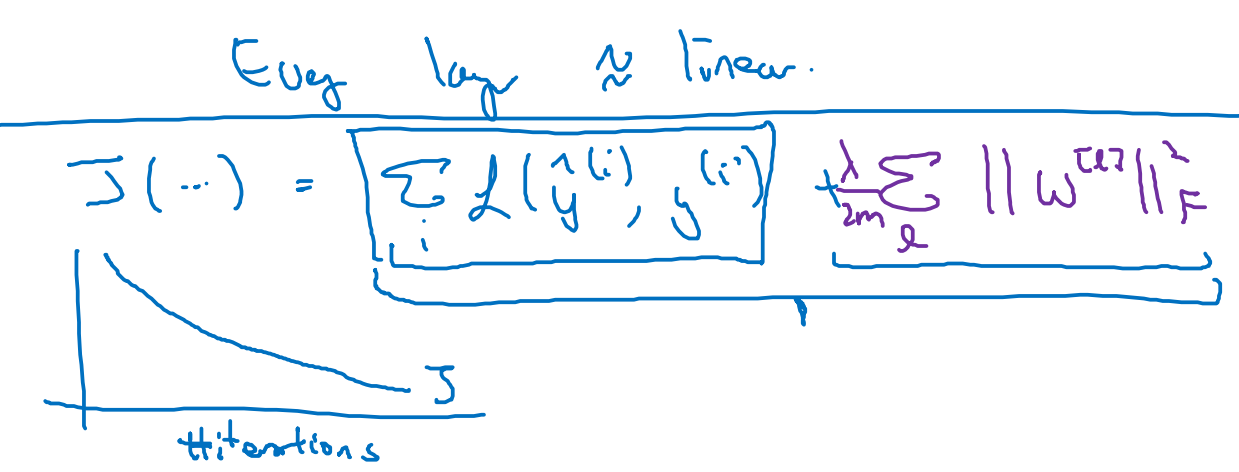 Every layer ≈ linear.
J(...) = ∑_i ℒ(ŷ^(i), y^(i)) + λ/2m ∑_l ||w^[l]||²_F
J
#iterations